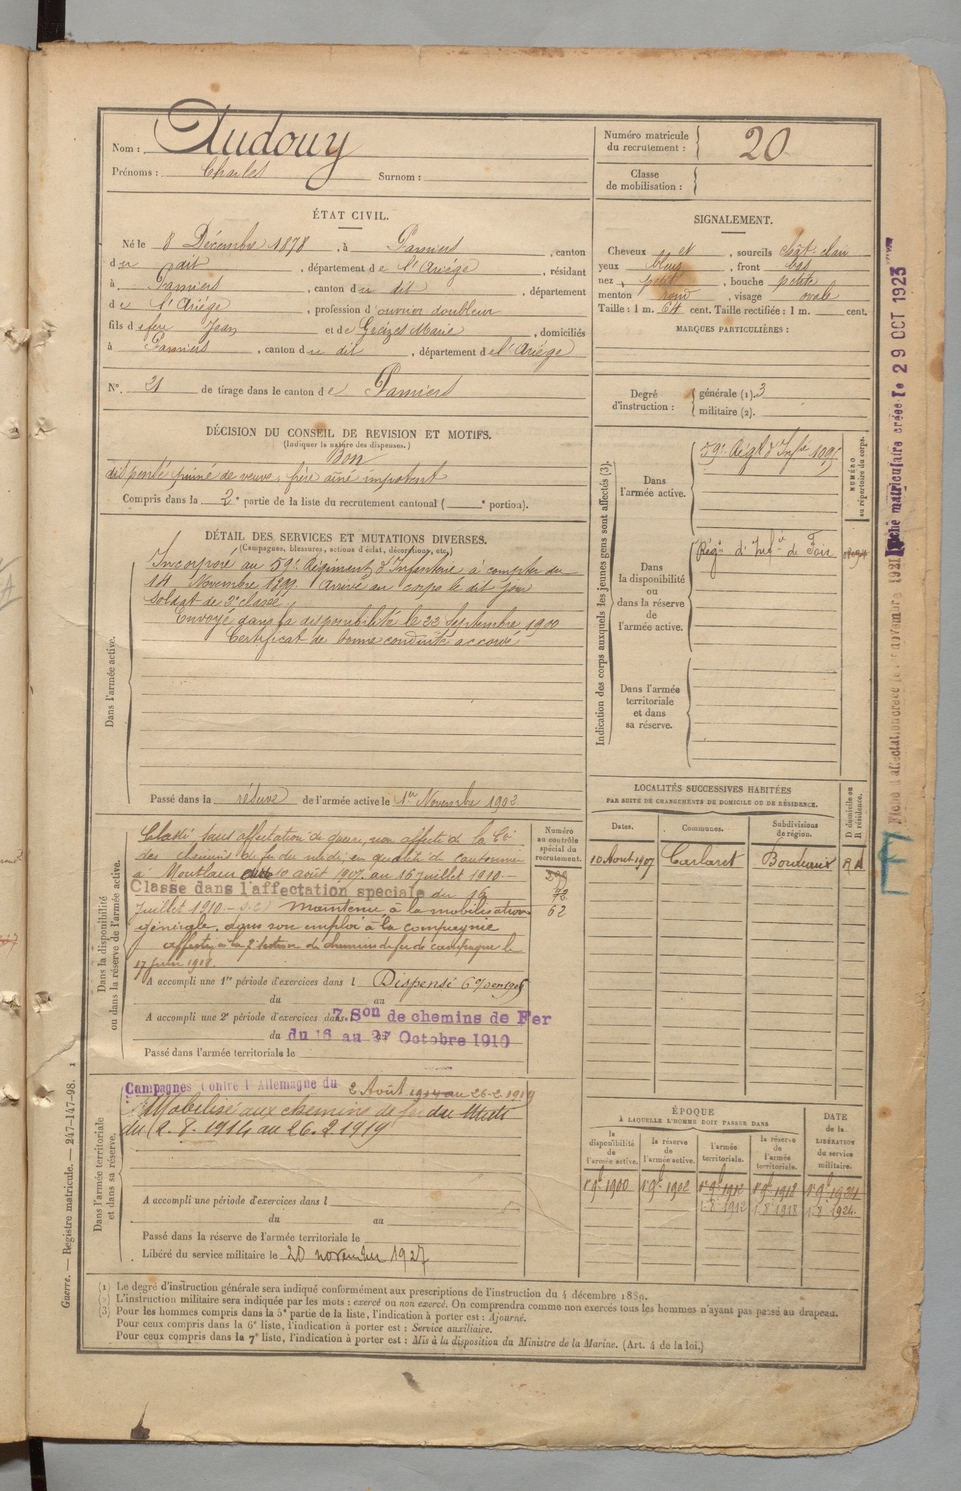 Nom : Audouy
Prénoms : Charles Surnom :
Numéro matricule du recrutement : 20
Classe de mobilisation :
ÉTAT CIVIL.
Né le 8 Décembre 1878, à Pamiers, canton
du dit, département de l'Ariège, résidant
à Pamiers, canton du dit, département
de l'Ariège, profession d'ouvrier doubleur
fils de feu Jean et de Marie, domiciliés
à Pamiers, canton du dit, département de l'Ariège
N° 21 de tirage dans le canton de Pamiers
SIGNALEMENT.
Cheveux et, sourcils chât-clair
yeux bleus, front bas
nez petit, bouche petite
menton rond, visage ovale
Taille : 1 m. 64 cent. Taille rectifiée : 1 m. cent.
MARQUES PARTICULIÈRES :
Degré d'instruction : générale (1). 3
militaire (2).
DÉCISION DU CONSEIL DE REVISION ET MOTIFS.
(Indiquer la nature des dispenses.)
Bon
dispensé puiné de veuve, frère aîné impotent
Compris dans la 2e partie de la liste du recrutement cantonal ( e portion).
DÉTAIL DES SERVICES ET MUTATIONS DIVERSES.
(Campagnes, blessures, actions d'éclat, décorations, etc.)
Dans l'armée active.
Incorporé au 59e Régiment d'Infanterie à compter du
14 Novembre 1899. Arrivé au corps le dit jour
Soldat de 2e classe
Envoyé dans la disponibilité le 22 Septembre 1900
Certificat de bonne conduite accordé
Passé dans la réserve de l'armée active le 1er Novembre 1902
Indication des corps auxquels les jeunes gens sont affectés (3).
NUMÉRO au répertoire du corps.
Dans l'armée active.
59e Régt d'Infie
Dans la disponibilité ou dans la réserve de l'armée active.
Régt d'Infie de Foix
Dans l'armée territoriale et dans sa réserve.
LOCALITÉS SUCCESSIVES HABITÉES
PAR SUITE DE CHANGEMENTS DE DOMICILE OU DE RÉSIDENCE.
Dates. Communes. Subdivisions de région. D domicile ou R résidence.
10 Aout 1907 Carlaret Bordeaux R
Dans la disponibilité ou dans la réserve de l'armée active.
Numéro au contrôle spécial du recrutement.
Classé sans affectation de guerre, non affecté de la Cie
des chemins de fer du midi, en qualité de cantonnier
à Montlaur du 10 août 1907 au 16 juillet 1910 -
Classé dans l'affectation spéciale du 16
Juillet 1910 - maintenu à la mobilisation
générale, dans son emploi à la compagnie
affecté à la 7e section de chemins de fer de campagne le
17 Juin 1918.
72
62
A accompli une 1re période d'exercices dans l Dispensé
du au
A accompli une 2e période d'exercices dans l 7 Son de chemins de Fer
du 16 au 27 Octobre 1910
Passé dans l'armée territoriale le
Dans l'armée territoriale et dans sa réserve.
Campagnes Contre l'Allemagne du 2 Août 1914 au 26-2-1919
Mobilisé aux chemins de fer du Midi
du 2.8.1914 au 26.2.1919
A accompli une période d'exercices dans l
du au
Passé dans la réserve de l'armée territoriale le
Libéré du service militaire le 20 novembre 1927
ÉPOQUE
À LAQUELLE L'HOMME DOIT PASSER DANS
la disponibilité de l'armée active. la réserve de l'armée active. l'armée territoriale. la réserve de l'armée territoriale. DATE de la LIBÉRATION du service militaire.
1er 9bre 1900 1er 9bre 1902 1er 9bre 1912 1er 9bre 1918 1er 9bre 1924
1.8.1912 1.8.1918 1.8.1924
(1) Le degré d'instruction générale sera indiqué conformément aux prescriptions de l'instruction du 4 décembre 1889.
(2) L'instruction militaire sera indiquée par les mots : exercé ou non exercé. On comprendra comme non exercés tous les hommes n'ayant pas passé au drapeau.
(3) Pour les hommes compris dans la 5e partie de la liste, l'indication à porter est : Ajourné.
Pour ceux compris dans la 6e liste, l'indication à porter est : Service auxiliaire.
Pour ceux compris dans la 7e liste, l'indication à porter est : Mis à la disposition du Ministre de la Marine. (Art. 4 de la loi.)
Guerre. — Registre matricule. — 247-147-98. 1
Fiche matriculaire créée le 29 OCT 1923
Fiche d'affectation créée le novembre 1921